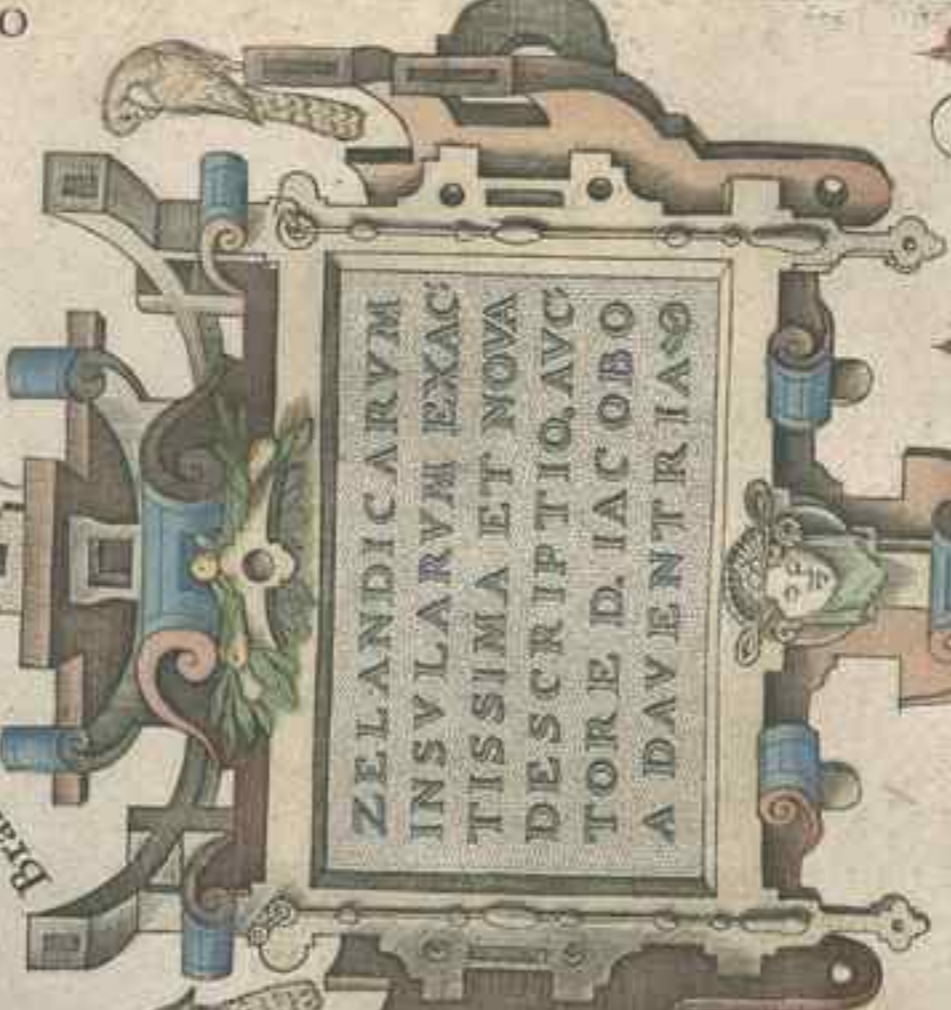 ZELANDICARVM
INSVLARVM EXAC:
TISSIMA ET NOVA
DESCRIPTIO, AVC:
TORE D. IACOBO
A DAVENTRIA